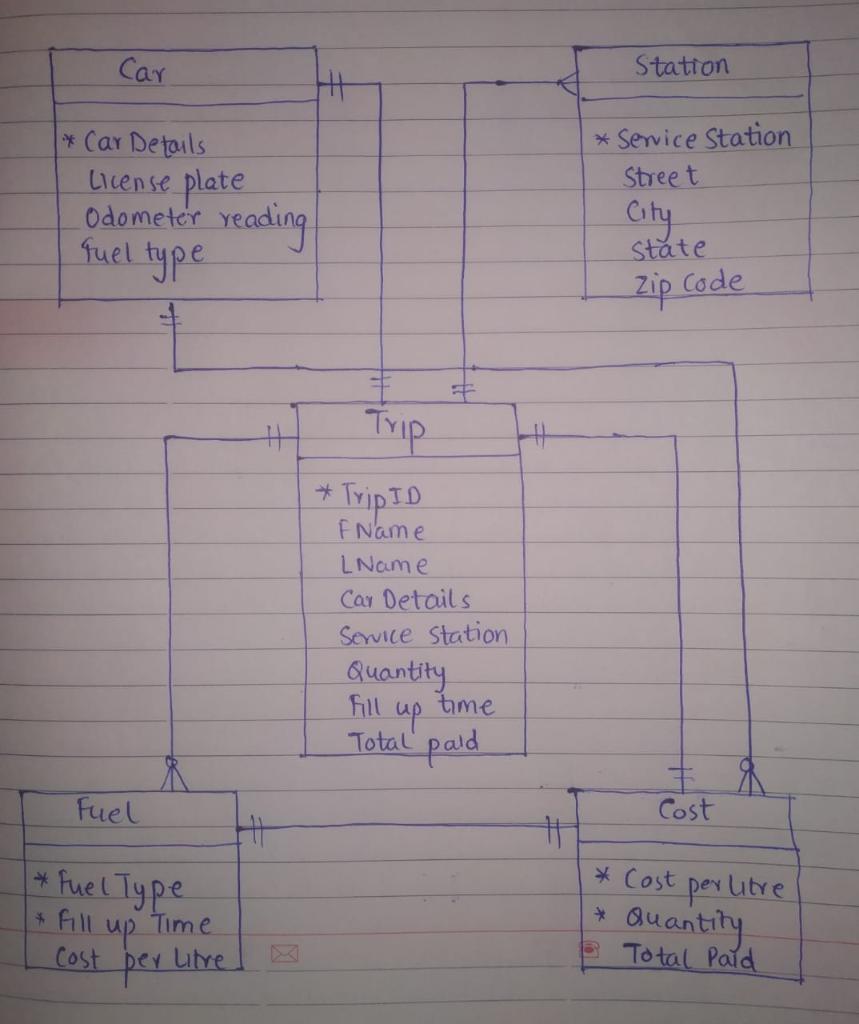 Car
* Car Details
License plate
Odometer reading
fuel type
Station
* Service Station
Street
City
State
Zip Code
Trip
* TripID
FName
LName
Car Details
Service Station
Quantity
Fill up time
Total paid
Fuel
* Fuel Type
* Fill up Time
Cost per Litre
Cost
* Cost per Litre
* Quantity
Total Paid